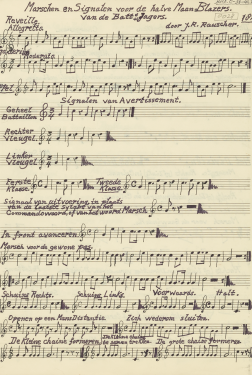 Marschen en Signalen voor de halve Maan Blazers.
van de Batt. Jagers.
Reveille
Allegretto
door J.R. Rauscher.
Moderato
Signalen van Avertissement.
Geheel
Bataillon
Rechter
Vleugel.
Linker
Vleugel.
Eerste
Klasse.
Tweede
Klasse.
Signaal van uitvoering in plaats
van de laatste Sylabe van het
Commandowoord, of van het woord Marsch
In front avanceren.
Marsch voor de gewone pas.
Schuins Rechts. Schuins Links. Voorwaards. Halt.
Openen op een Mans Distantie. Zich wederom sluiten.
De Kleine chaine formeren.
De Kleine chaine
De grote chaine formeren